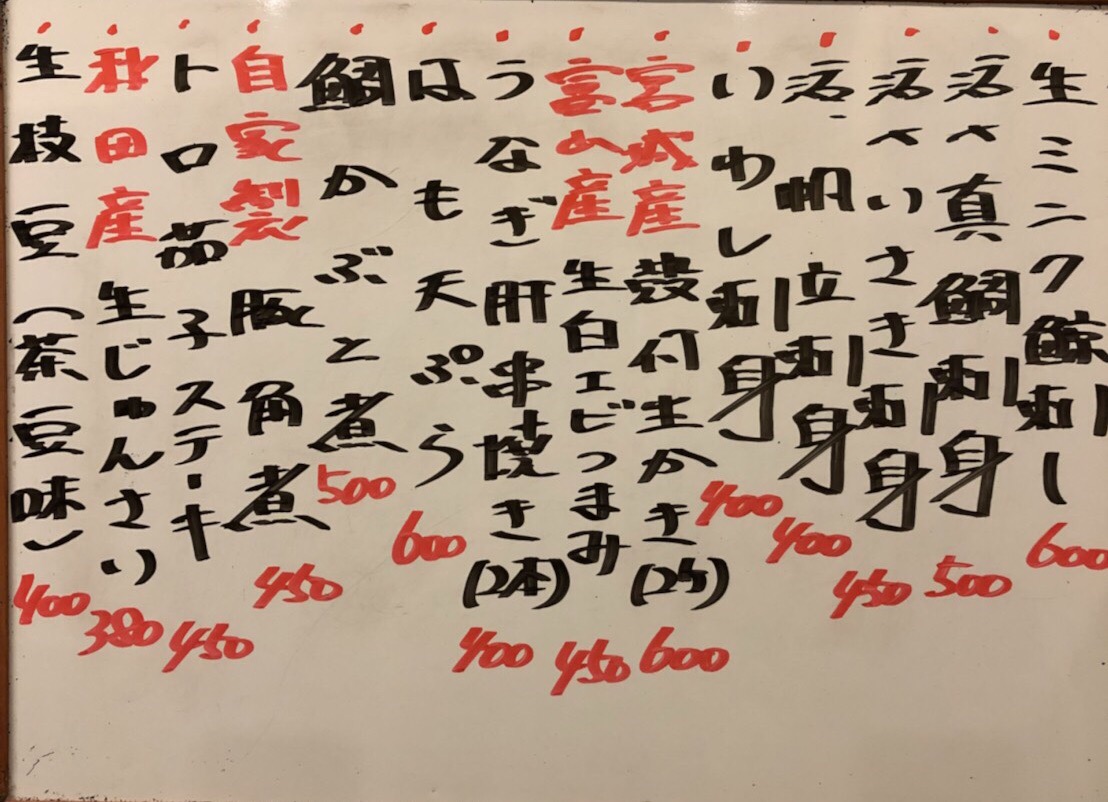 生ミンク鯨刺し 600
活〆真鯛刺身 500
活〆いさき刺身 450
活帆立刺身 400
いわし刺身 400
宮城産殻付生かき(2ケ) 600
富山産生白エビつまみ 450
うなぎ肝串焼き(2本) 400
はも天ぷら 600
鯛かぶと煮 500
自家製豚角煮 450
トロ茄子ステーキ 450
秋田産生じゅんさい 380
生枝豆(茶豆味) 400